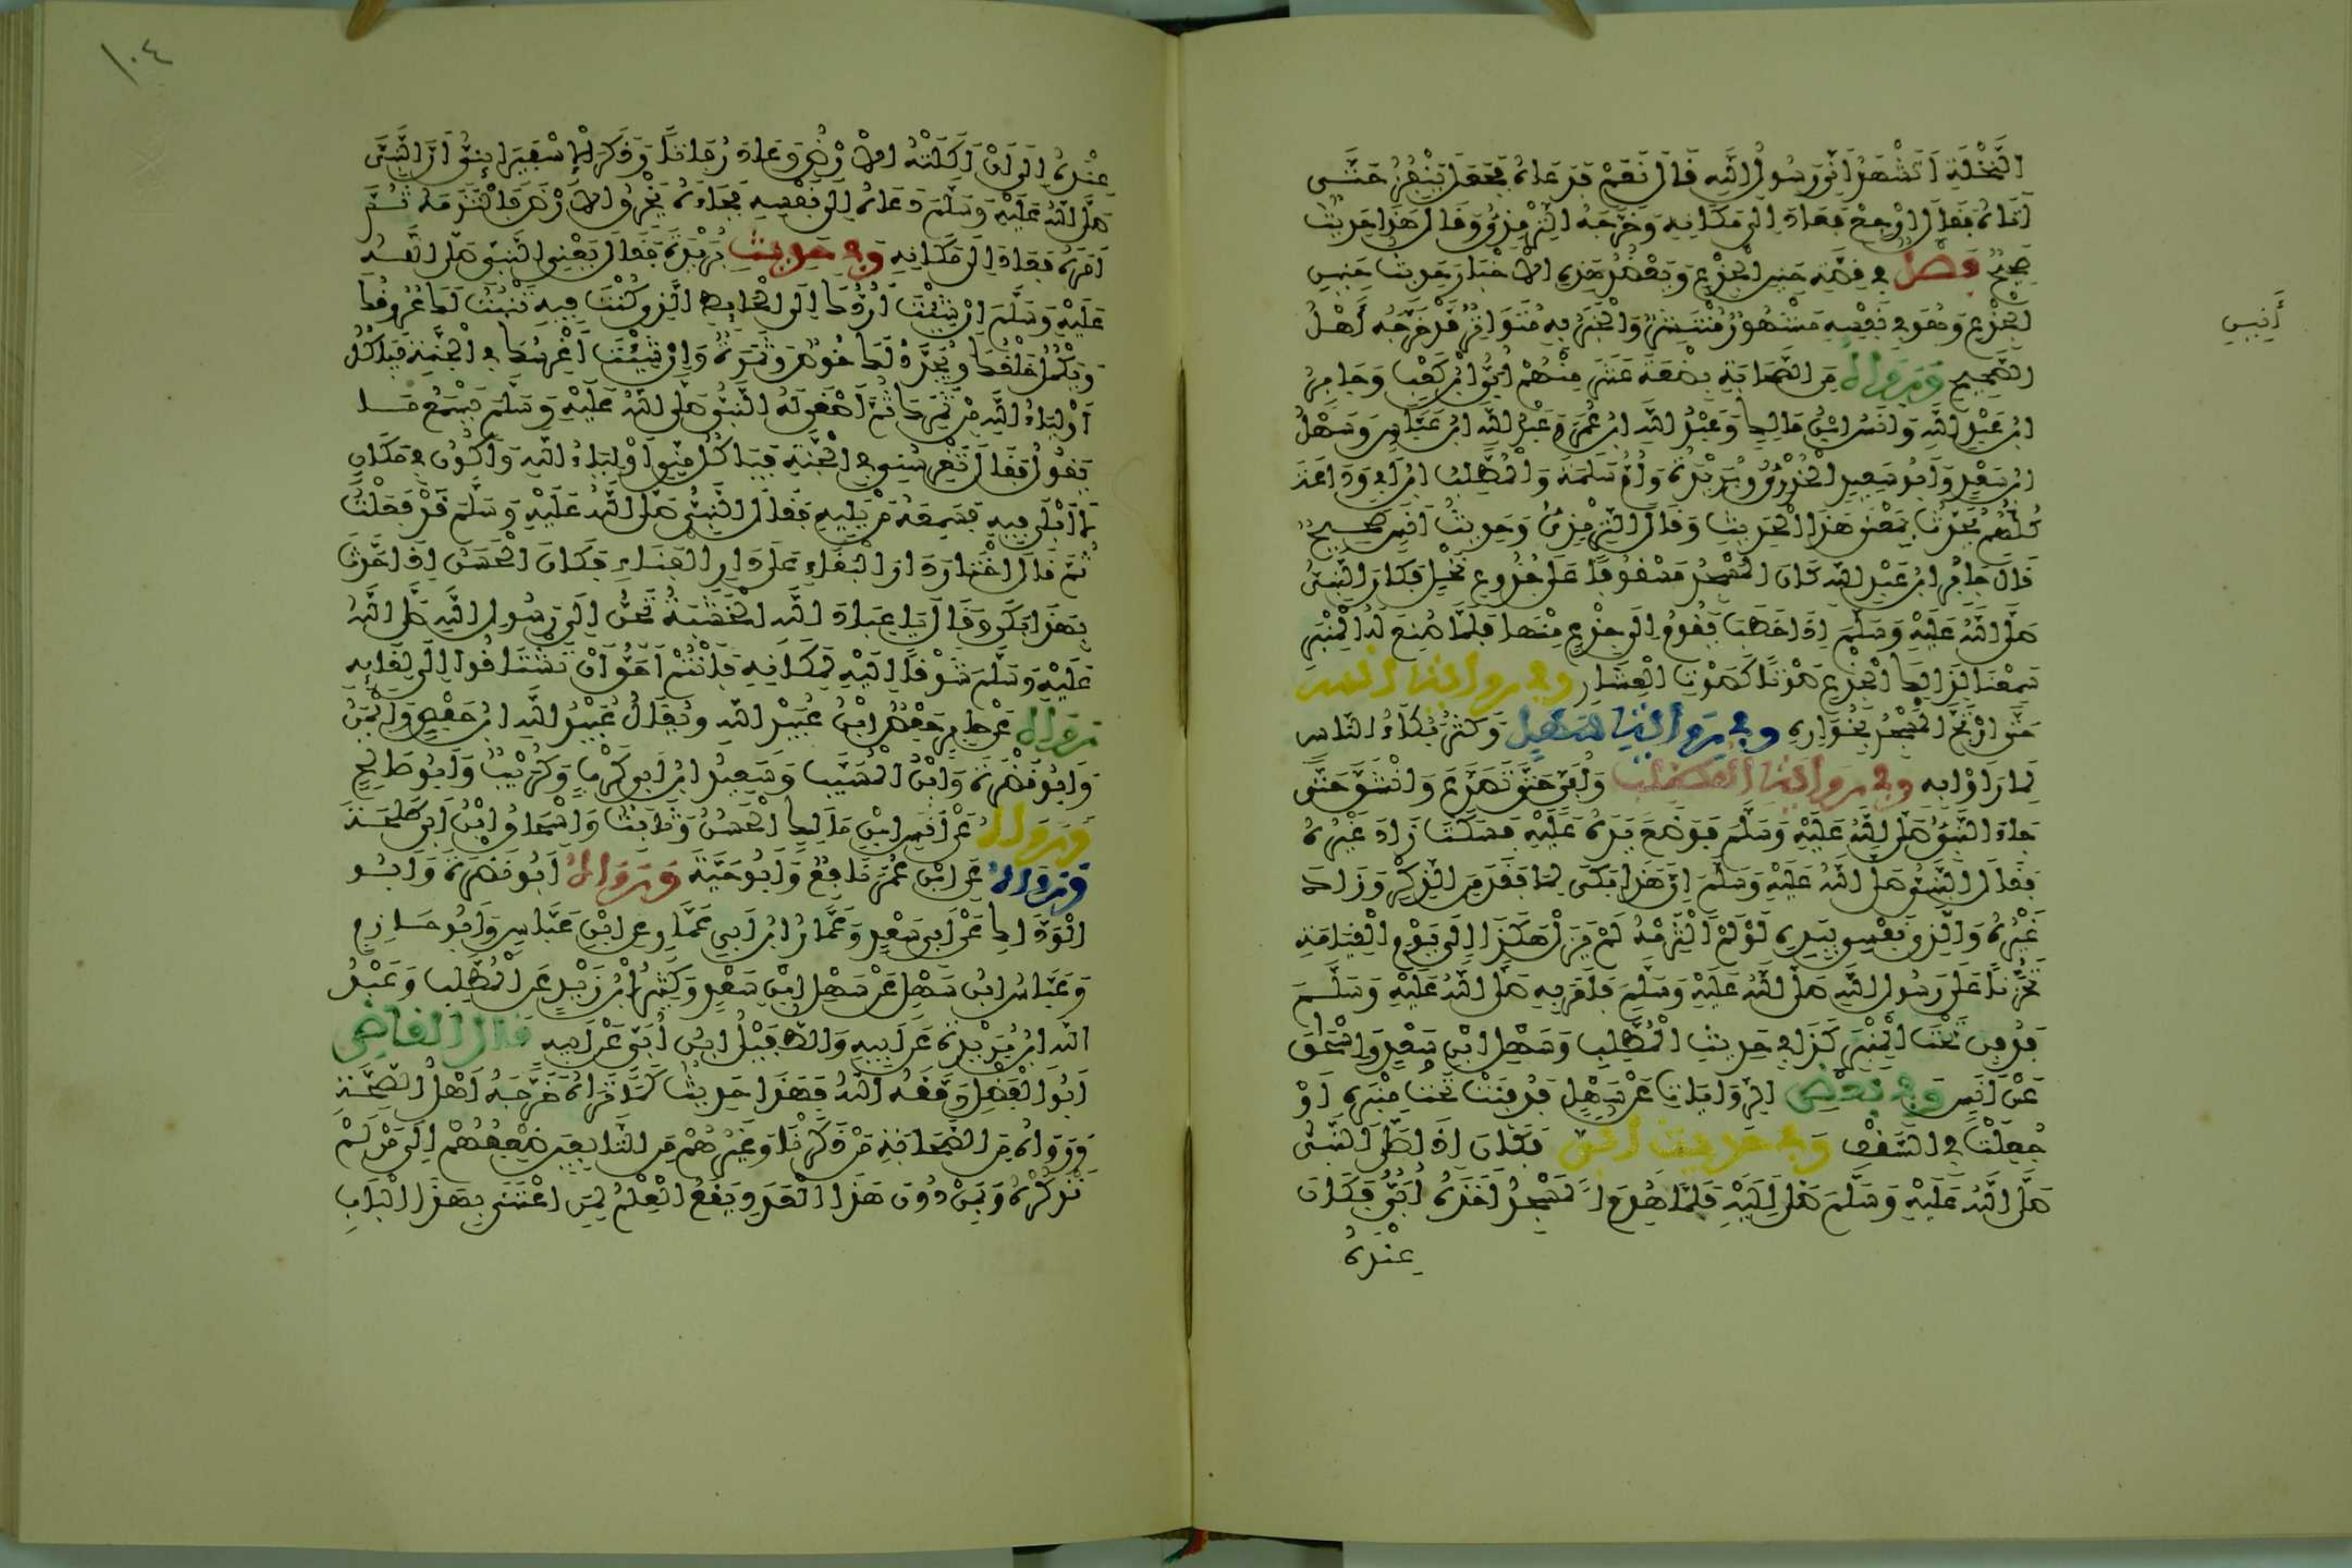 النَّخْلَةِ أَتَشْهَدُ أَنِّي رَسُولُ اللَّهِ قَالَ نَعَمْ فَدَعَاهُ فَجَعَلَ يَنْقُزُ حَتَّى
أَتَاهُ فَقَالَ ارْجِعْ فَعَادَ إِلَى مَكَانِهِ وَخَرَّجَهُ التِّرْمِذِيُّ وَقَالَ هَذَا حَدِيثٌ
صَحِيحٌ فَصْلٌ فِي قِصَّةِ حَنِينِ الْجِذْعِ وَيَعْضُدُ هَذِهِ الْأَخْبَارَ حَدِيثُ حَنِينِ
أَنِينِ
الْجِذْعِ وَهُوَ فِي نَفْسِهِ مَشْهُورٌ مُنْتَشِرٌ وَالْخَبَرُ بِهِ مُتَوَاتِرٌ قَدْ خَرَّجَهُ أَهْلُ
الصَّحِيحِ وَرَوَاهُ مِنَ الصَّحَابَةِ بِضْعَةَ عَشَرَ مِنْهُمْ أُبَيُّ ابْنُ كَعْبٍ وَجَابِرُ
ابْنُ عَبْدِ اللَّهِ وَأَنَسُ ابْنُ مَالِكٍ وَعَبْدُ اللَّهِ ابْنُ عُمَرَ وَعَبْدُ اللَّهِ ابْنُ عَبَّاسٍ وَسَهْلُ
ابْنُ سَعْدٍ وَأَبُو سَعِيدٍ الْخُدْرِيُّ وَبُرَيْدَةُ وَأُمُّ سَلَمَةَ وَالْمُطَّلِبُ ابْنُ أَبِي وَدَاعَةَ
كُلُّهُمْ يُحَدِّثُ بِمَعْنَى هَذَا الْحَدِيثِ وَقَالَ التِّرْمِذِيُّ وَحَدِيثُ أَنَسٍ صَحِيحٌ
قَالَ جَابِرُ ابْنُ عَبْدِ اللَّهِ كَانَ الْمَسْجِدُ مَسْقُوفًا عَلَى جُذُوعِ نَخْلٍ فَكَانَ النَّبِيُّ
صَلَّى اللَّهُ عَلَيْهِ وَسَلَّمَ إِذَا خَطَبَ يَقُومُ إِلَى جِذْعٍ مِنْهَا فَلَمَّا صُنِعَ لَهُ الْمِنْبَرُ
سَمِعْنَا لِذَلِكَ الْجِذْعِ صَوْتًا كَصَوْتِ الْعِشَارِ وَفِي رِوَايَةِ أَنَسٍ
حَتَّى ارْتَجَّ الْمَسْجِدُ بِخُوَارِهِ وَفِي رِوَايَةِ سَهْلٍ وَكَثُرَ بُكَاءُ النَّاسِ
لِمَا رَأَوْا بِهِ وَفِي رِوَايَةِ الْمُطَّلِبِ وَأُبَيٍّ حَتَّى تَصَدَّعَ وَانْشَقَّ حَتَّى
جَاءَ النَّبِيُّ صَلَّى اللَّهُ عَلَيْهِ وَسَلَّمَ فَوَضَعَ يَدَهُ عَلَيْهِ فَسَكَتَ زَادَ غَيْرُهُ
فَقَالَ النَّبِيُّ صَلَّى اللَّهُ عَلَيْهِ وَسَلَّمَ إِنَّ هَذَا بَكَى لِمَا فَقَدَ مِنَ الذِّكْرِ وَزَادَ
غَيْرُهُ وَالَّذِي نَفْسِي بِيَدِهِ لَوْ لَمْ أَلْتَزِمْهُ لَمْ يَزَلْ هَكَذَا إِلَى يَوْمِ الْقِيَامَةِ
تَحَزُّنًا عَلَى رَسُولِ اللَّهِ صَلَّى اللَّهُ عَلَيْهِ وَسَلَّمَ فَأَمَرَ بِهِ صَلَّى اللَّهُ عَلَيْهِ وَسَلَّمَ
فَدُفِنَ تَحْتَ الْمِنْبَرِ كَذَا فِي حَدِيثِ الْمُطَّلِبِ وَسَهْلِ ابْنِ سَعْدٍ وَإِسْحَاقَ
عَنْ أَنَسٍ وَفِي بَعْضِ الرِّوَايَاتِ عَنْ سَهْلٍ فَدُفِنَتْ تَحْتَ مِنْبَرِهِ أَوْ
جُعِلَتْ فِي السَّقْفِ وَفِي حَدِيثِ أُبَيٍّ فَكَانَ إِذَا صَلَّى النَّبِيُّ
صَلَّى اللَّهُ عَلَيْهِ وَسَلَّمَ صَلَّى إِلَيْهِ فَلَمَّا هُدِمَ الْمَسْجِدُ أَخَذَهُ أُبَيٌّ فَكَانَ
عِنْدَهُ
١٠٤
عِنْدَهُ إِلَى أَنْ أَكَلَتْهُ الْأَرْضُ وَعَادَ رُفَاتًا وَذَكَرَ الْإِسْفَرَايِنِيُّ أَنَّ النَّبِيَّ
صَلَّى اللَّهُ عَلَيْهِ وَسَلَّمَ دَعَاهُ إِلَى نَفْسِهِ فَجَاءَهُ يَخْرِقُ الْأَرْضَ فَالْتَزَمَهُ ثُمَّ
أَمَرَهُ فَعَادَ إِلَى مَكَانِهِ وَفِي حَدِيثِ بُرَيْدَةَ فَقَالَ يَعْنِي النَّبِيَّ صَلَّى اللَّهُ
عَلَيْهِ وَسَلَّمَ إِنْ شِئْتَ أَرُدُّكَ إِلَى الْحَائِطِ الَّذِي كُنْتَ فِيهِ تَنْبُتُ لَكَ عُرُوقُكَ
وَيَكْمُلُ خَلْقُكَ وَيُجَدَّدُ لَكَ خُوصٌ وَثَمَرَةٌ وَإِنْ شِئْتَ أَغْرِسُكَ فِي الْجَنَّةِ فَيَأْكُلُ
أَوْلِيَاءُ اللَّهِ مِنْ ثَمَرِكَ ثُمَّ أَصْغَى لَهُ النَّبِيُّ صَلَّى اللَّهُ عَلَيْهِ وَسَلَّمَ يَسْمَعُ مَا
يَقُولُ فَقَالَ تَغْرِسُنِي فِي الْجَنَّةِ فَيَأْكُلُ مِنِّي أَوْلِيَاءُ اللَّهِ وَأَكُونُ فِي مَكَانٍ
لَا أَبْلَى فِيهِ فَسَمِعَهُ مَنْ يَلِيهِ فَقَالَ النَّبِيُّ صَلَّى اللَّهُ عَلَيْهِ وَسَلَّمَ قَدْ فَعَلْتُ
ثُمَّ قَالَ اخْتَارَ دَارَ الْبَقَاءِ عَلَى دَارِ الْفَنَاءِ فَكَانَ الْحَسَنُ إِذَا حَدَّثَ
بِهَذَا بَكَى وَقَالَ يَا عِبَادَ اللَّهِ الْخَشَبَةُ تَحِنُّ إِلَى رَسُولِ اللَّهِ صَلَّى اللَّهُ
عَلَيْهِ وَسَلَّمَ شَوْقًا إِلَيْهِ لِمَكَانِهِ فَأَنْتُمْ أَحَقُّ أَنْ تَشْتَاقُوا إِلَى لِقَائِهِ
رَوَاهُ عَنْ جَابِرٍ حَفْصُ ابْنُ عُبَيْدِ اللَّهِ وَيُقَالُ عُبَيْدُ اللَّهِ ابْنُ حَفْصٍ وَأَيْمَنُ
وَأَبُو نَضْرَةَ وَابْنُ الْمُسَيَّبِ وَسَعِيدُ ابْنُ أَبِي كَرِبٍ وَكُرَيْبٌ وَأَبُو صَالِحٍ
وَرَوَاهُ عَنْ أَنَسِ ابْنِ مَالِكٍ الْحَسَنُ وَثَابِتٌ وَإِسْحَاقُ ابْنُ أَبِي طَلْحَةَ
وَرَوَاهُ عَنِ ابْنِ عُمَرَ نَافِعٌ وَأَبُو حَيَّةَ وَرَوَاهُ أَبُو نَضْرَةَ وَأَبُو
الْوَدَّاكِ عَنْ أَبِي سَعِيدٍ وَعَمَّارُ ابْنُ أَبِي عَمَّارٍ عَنِ ابْنِ عَبَّاسٍ وَأَبُو حَازِمٍ
وَعَبَّاسُ ابْنُ سَهْلٍ عَنْ سَهْلِ ابْنِ سَعْدٍ وَكَثِيرُ ابْنُ زَيْدٍ عَنِ الْمُطَّلِبِ وَعَبْدُ
اللَّهِ ابْنُ بُرَيْدَةَ عَنْ أَبِيهِ وَالطُّفَيْلُ ابْنُ أُبَيٍّ عَنْ أَبِيهِ قَالَ الْقَاضِي
أَبُو الْفَضْلِ وَفَّقَهُ اللَّهُ فَهَذَا حَدِيثٌ كَمَا تَرَاهُ خَرَّجَهُ أَهْلُ الصِّحَّةِ
وَرَوَاهُ مِنَ الصَّحَابَةِ مَنْ ذَكَرْنَا وَغَيْرُهُمْ مِنَ التَّابِعِينَ ضِعْفُهُمْ إِلَى مَنْ لَمْ
نَذْكُرْهُ وَبِمَنْ دُونَ هَذَا الْعَدَدِ يَقَعُ الْعِلْمُ لِمَنِ اعْتَنَى بِهَذَا الْبَابِ